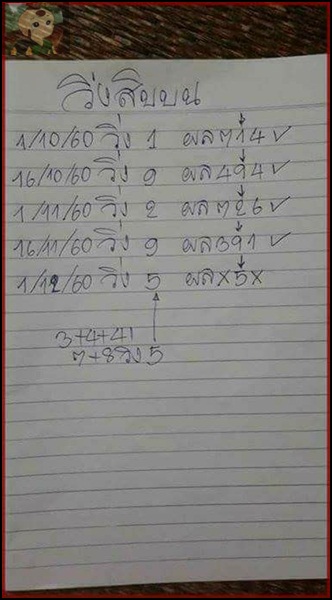 วิ่งสิบบน
1/10/60 วิ่ง 1 ผล 714 ✓
16/10/60 วิ่ง 9 ผล 494 ✓
1/11/60 วิ่ง 2 ผล 726 ✓
16/11/60 วิ่ง 9 ผล 391 ✓
1/12/60 วิ่ง 5 ผล x5x
3+4+41
7+8วิ่ง 5